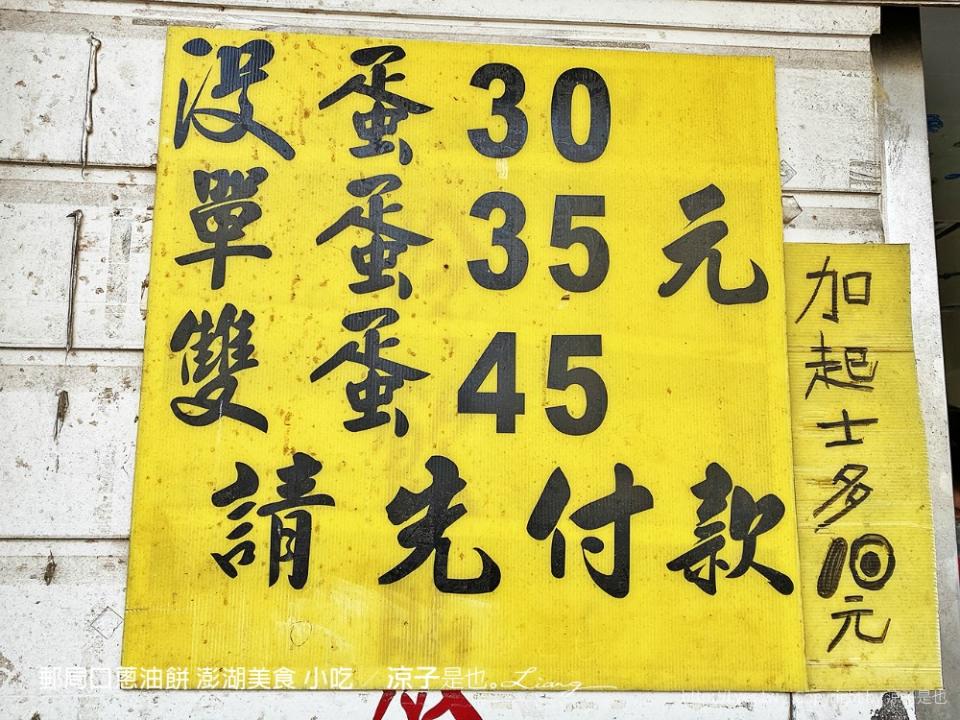 没蛋30
單蛋35元
雙蛋45
請先付款
加起士多10元
郵局口蔥油餅 澎湖美食 小吃／涼子是也。Liang